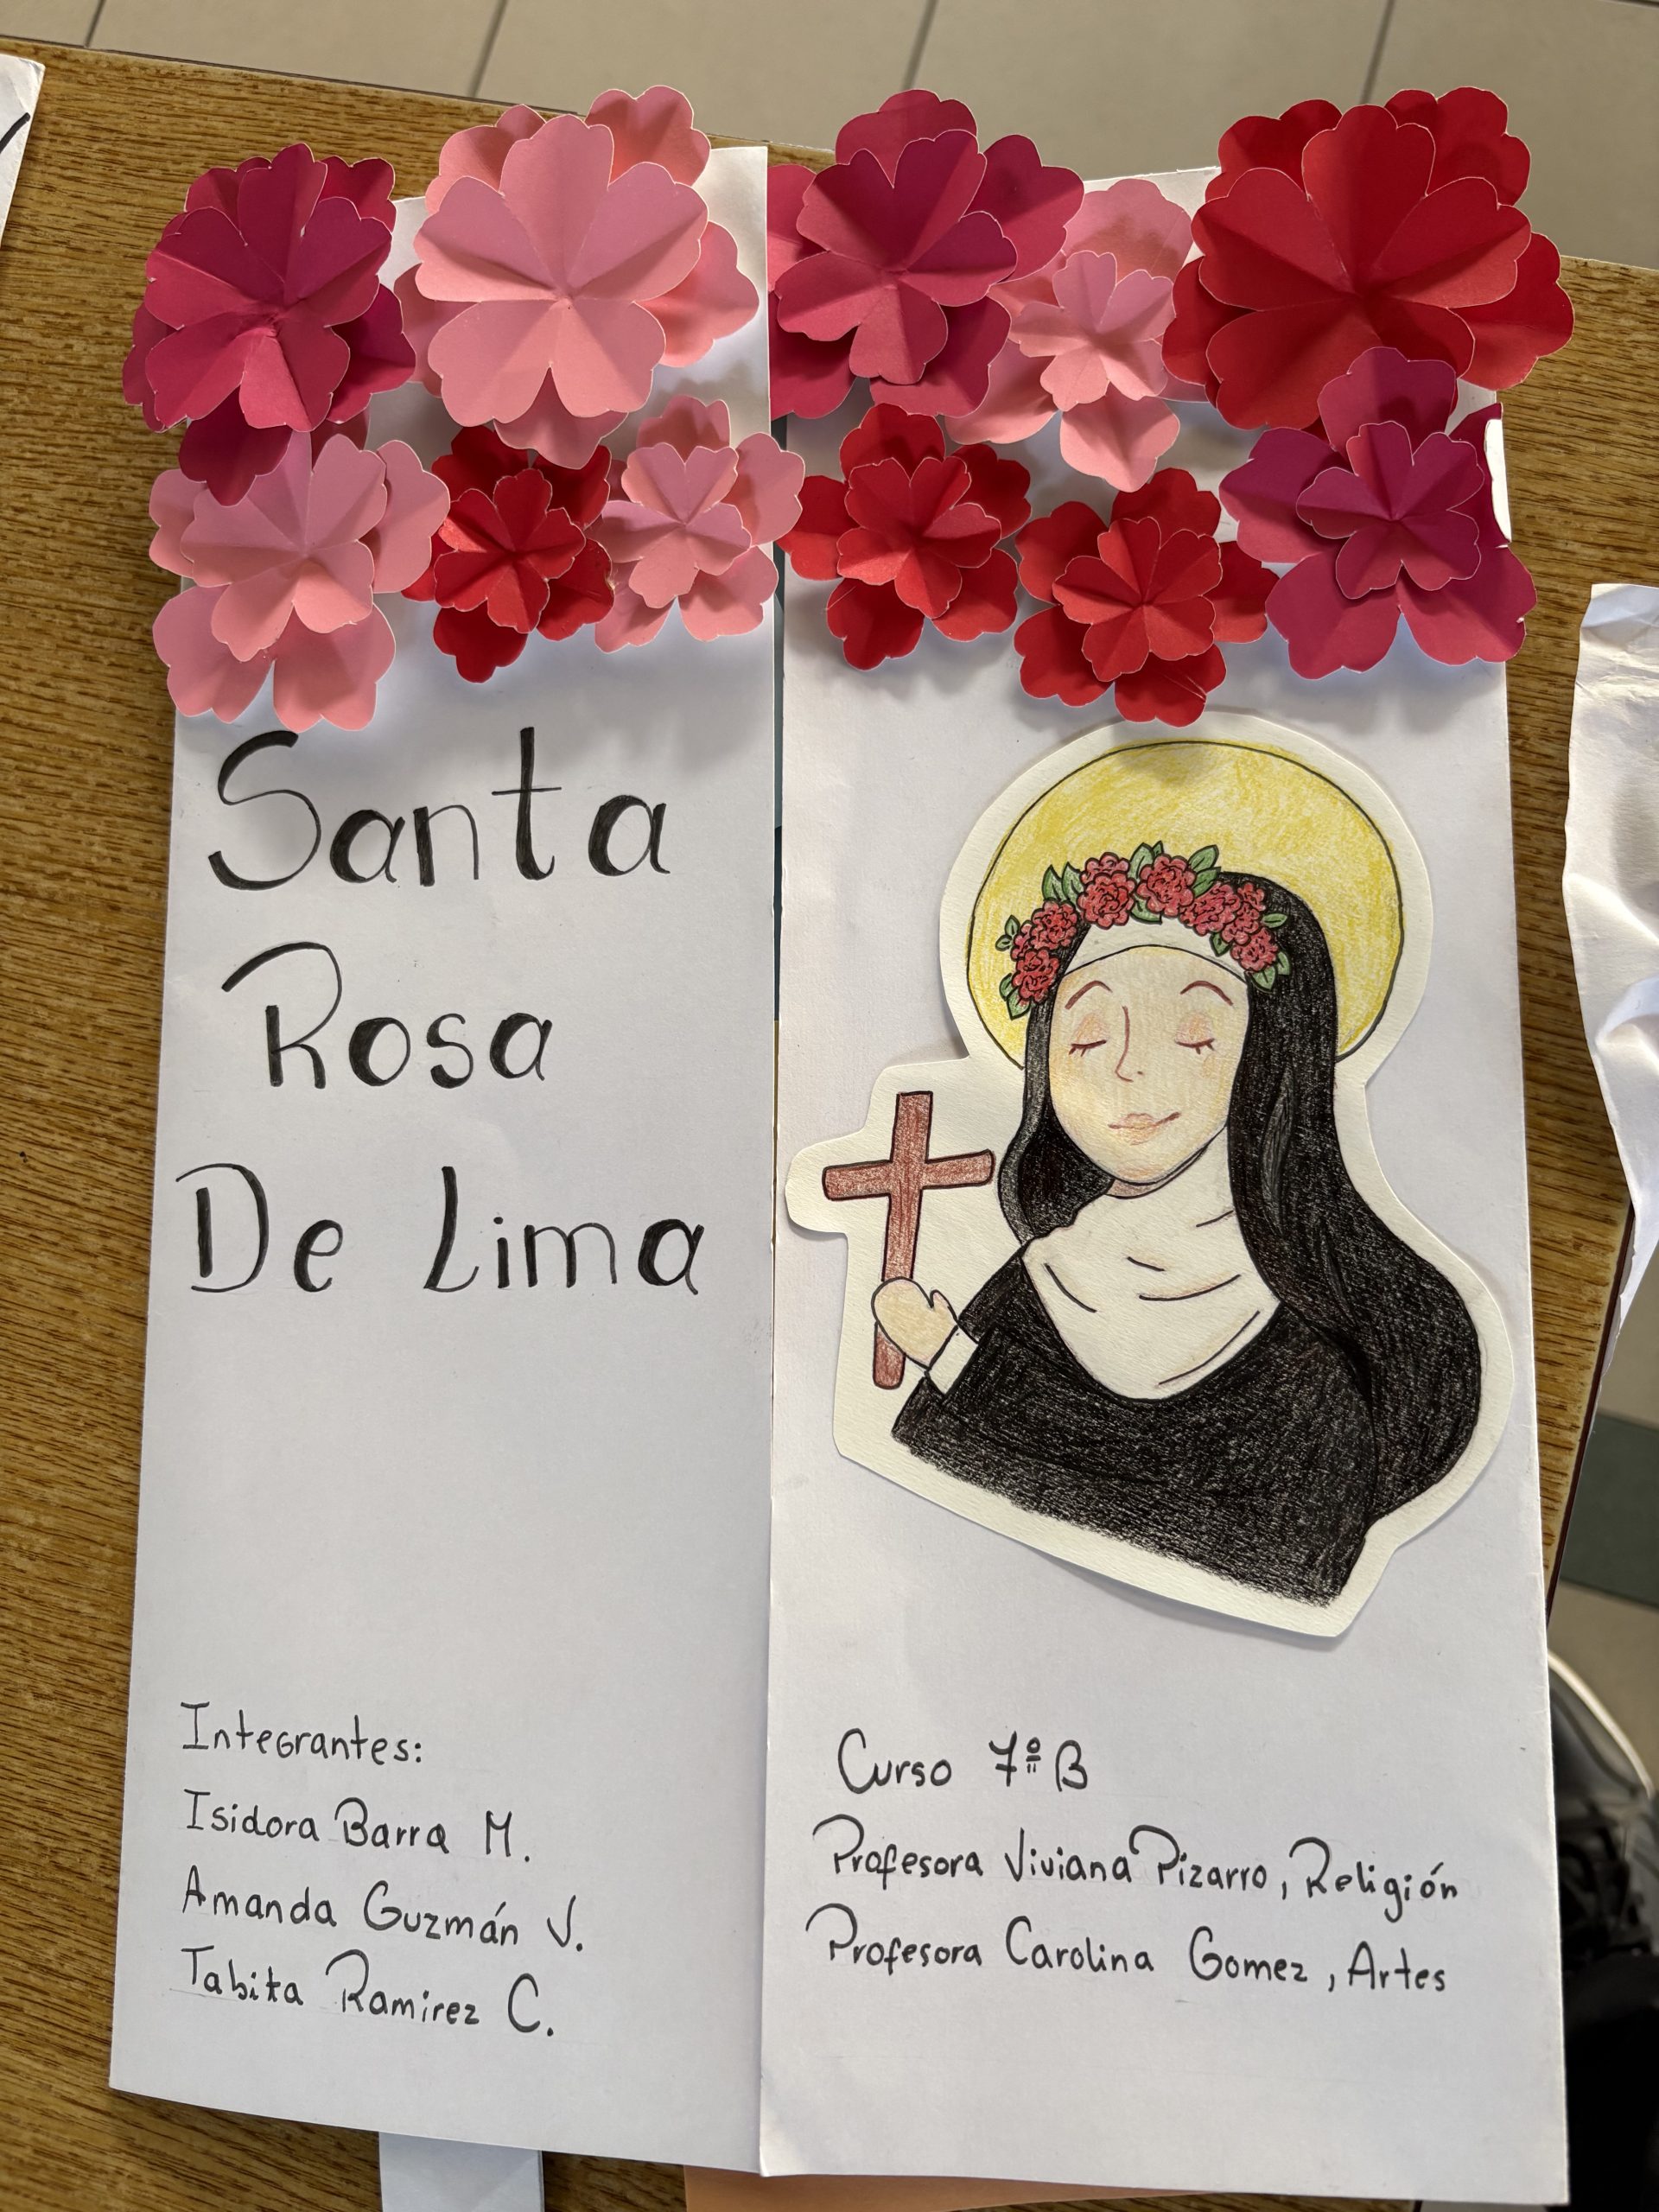 Santa
Rosa
De Lima
Integrantes:
Isidora Barra M.
Amanda Guzmán V.
Tabita Ramirez C.
Curso 7º B
Profesora Viviana Pizarro, Religión
Profesora Carolina Gomez, Artes